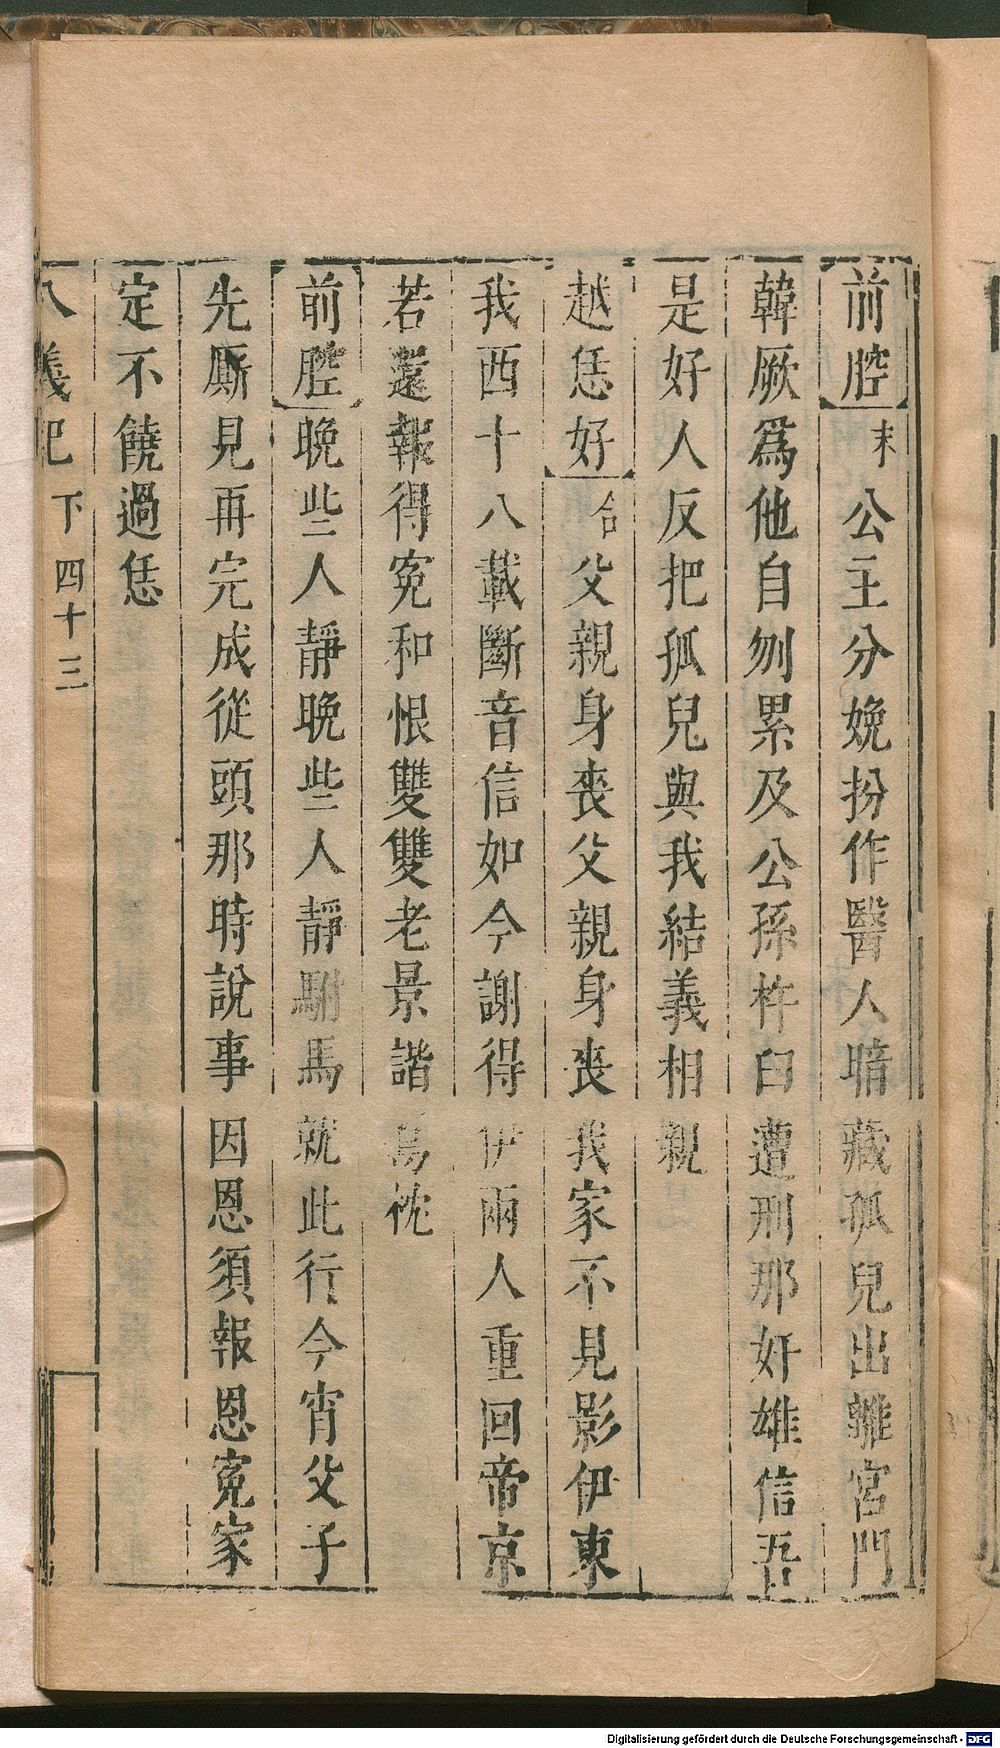 前腔末公主分娩扮作醫人暗藏孤兒出離宮門
韓厥爲他自刎累及公孫杵臼遭刑那奸雄信吾
是好人反把孤兒與我結義相親
越恁好合父親身喪父親身喪我家不見影伊東
我西十八載斷音信如今謝得伊兩人重回帝京
若還報得冤和恨雙雙老景諧鴛枕
前腔晩些人靜晩些人靜駙馬就此行今宵父子
先厮見再完成從頭那時說事因恩須報恩冤家
定不饒過恁
八義記 下 四十三
Digitalisierung gefördert durch die Deutsche Forschungsgemeinschaft - DFG